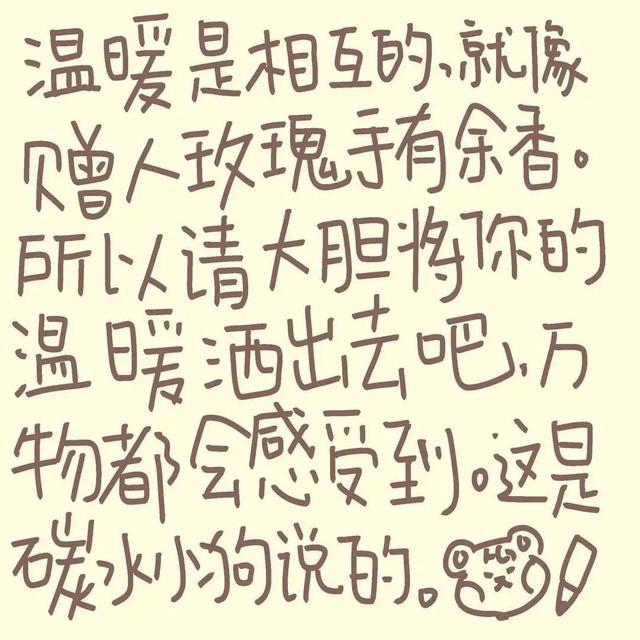 温暖是相互的、就像
赠人玫瑰手有余香。
所以请大胆将你的
温暖洒出去吧,万
物都会感受到。这是
碳水小狗说的。